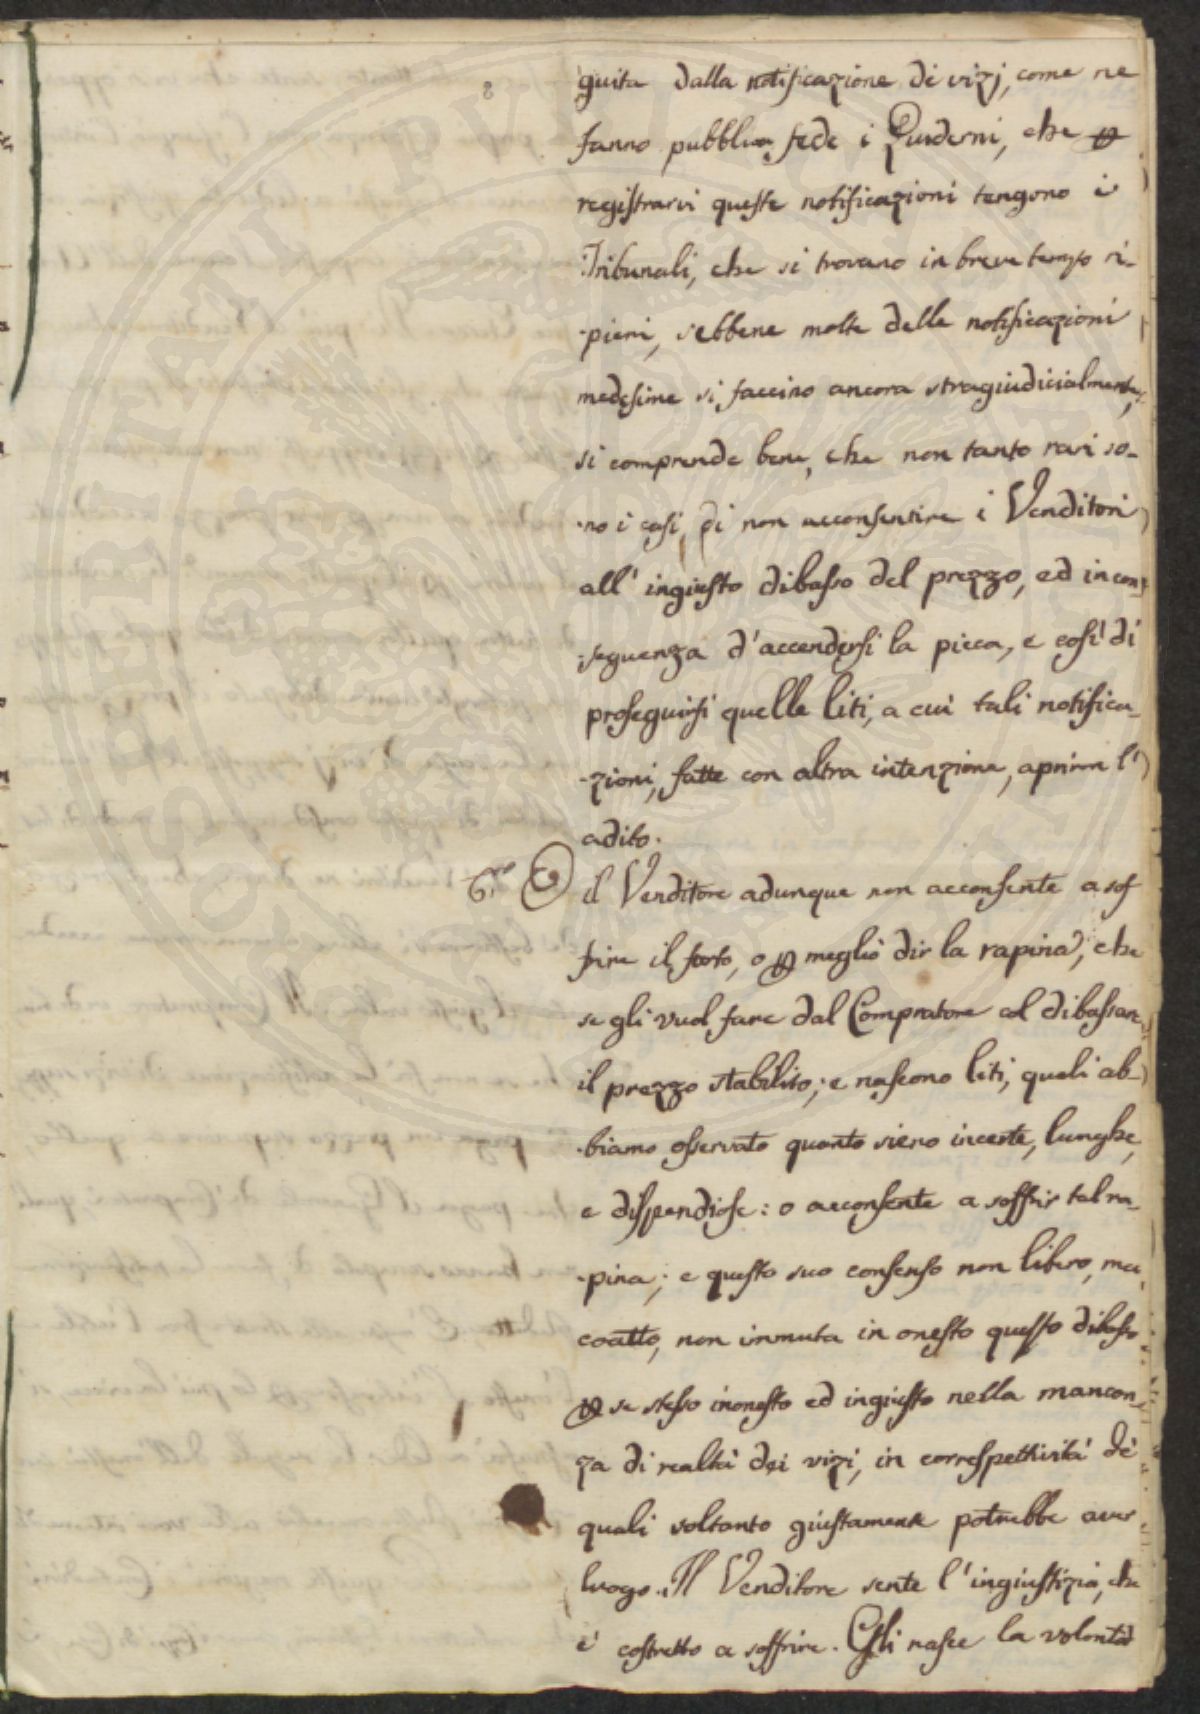 8
guita dalla notificazione di vizj, come ne
fanno pubblica fede i Quaderni, che p
registrarvi queste notificazioni tengono i
Tribunali, che si trovano in breve tempo ri-
-pieni, sebbene molte delle notificazioni
medesime si faccino ancora stragiudicialmente,
si comprende bene, che non tanto rari so-
-no i casi di non acconsentire i Venditori
all' ingiusto dibasso del prezzo, ed in con-
-seguenza d'accendersi la picca, e così di
proseguirsi quelle liti, a cui tali notifica-
-zioni, fatte con altra intenzione, apriron l'
adito.
6.º O il Venditore adunque non acconsente a sof
frire il torto, o p meglio dir la rapina, che
se gli vuol fare dal Compratore col dibassare
il prezzo stabilito; e nascono liti, quali ab-
-biamo osservato quanto sieno incerte, lunghe,
e dispendiose: o acconsente a soffrir tal ra-
-pina; e questo suo consenso non libero, ma
coatto, non immuta in onesto questo dibasso
p se stesso inonesto ed ingiusto nella mancan-
za di realtà dei vizi, in correspettività de'
quali soltanto giustamente potrebbe aver
luogo. Il Venditore sente l'ingiustizia, che
è costretto a soffrire. Gli nasce la volontà